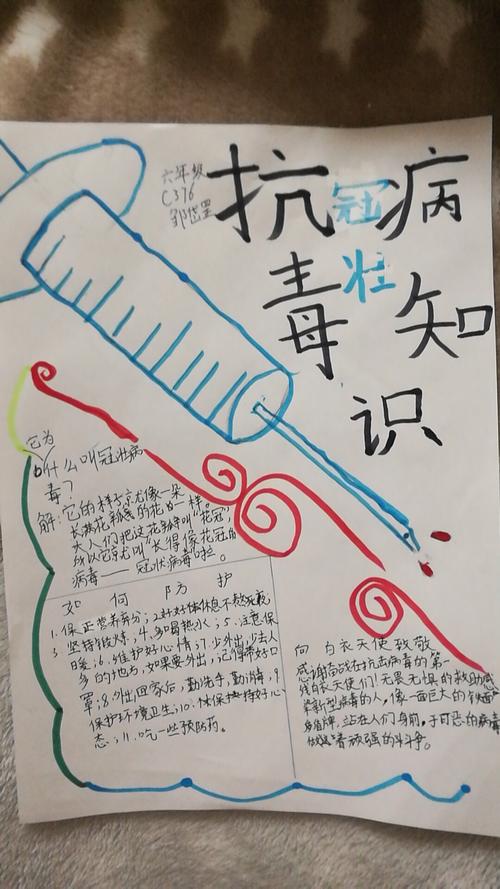 六年级
C376
抗冠病
毒壮知
识
它为
什么叫冠壮病
毒?
解:它的样子京尤像一朵
长满花瓣的花一样。
大人们把这花瓣叫"花冠",
所以它京尤叫"长得像花冠的
病毒——冠状病毒"啦。
如何防护
1.保证营养
3.坚持锻炼;4.多喝热水;5.注意保
暖;6.维护好心情;7.少外出,少去人
多的地方,如果要外出,记得带好口
罩;8.外出回家后,勤洗手,勤消毒;9.
保护环境卫生;10.保持好心
态;11.吃一些预防药。
向白衣天使致敬
感谢奋战在抗击病毒的第一
线白衣天使们!无畏无惧的救助感
染新型病毒的人,像一面巨大的
盾牌,站在人们身前,于可恶的病毒
做着顽强的斗争。